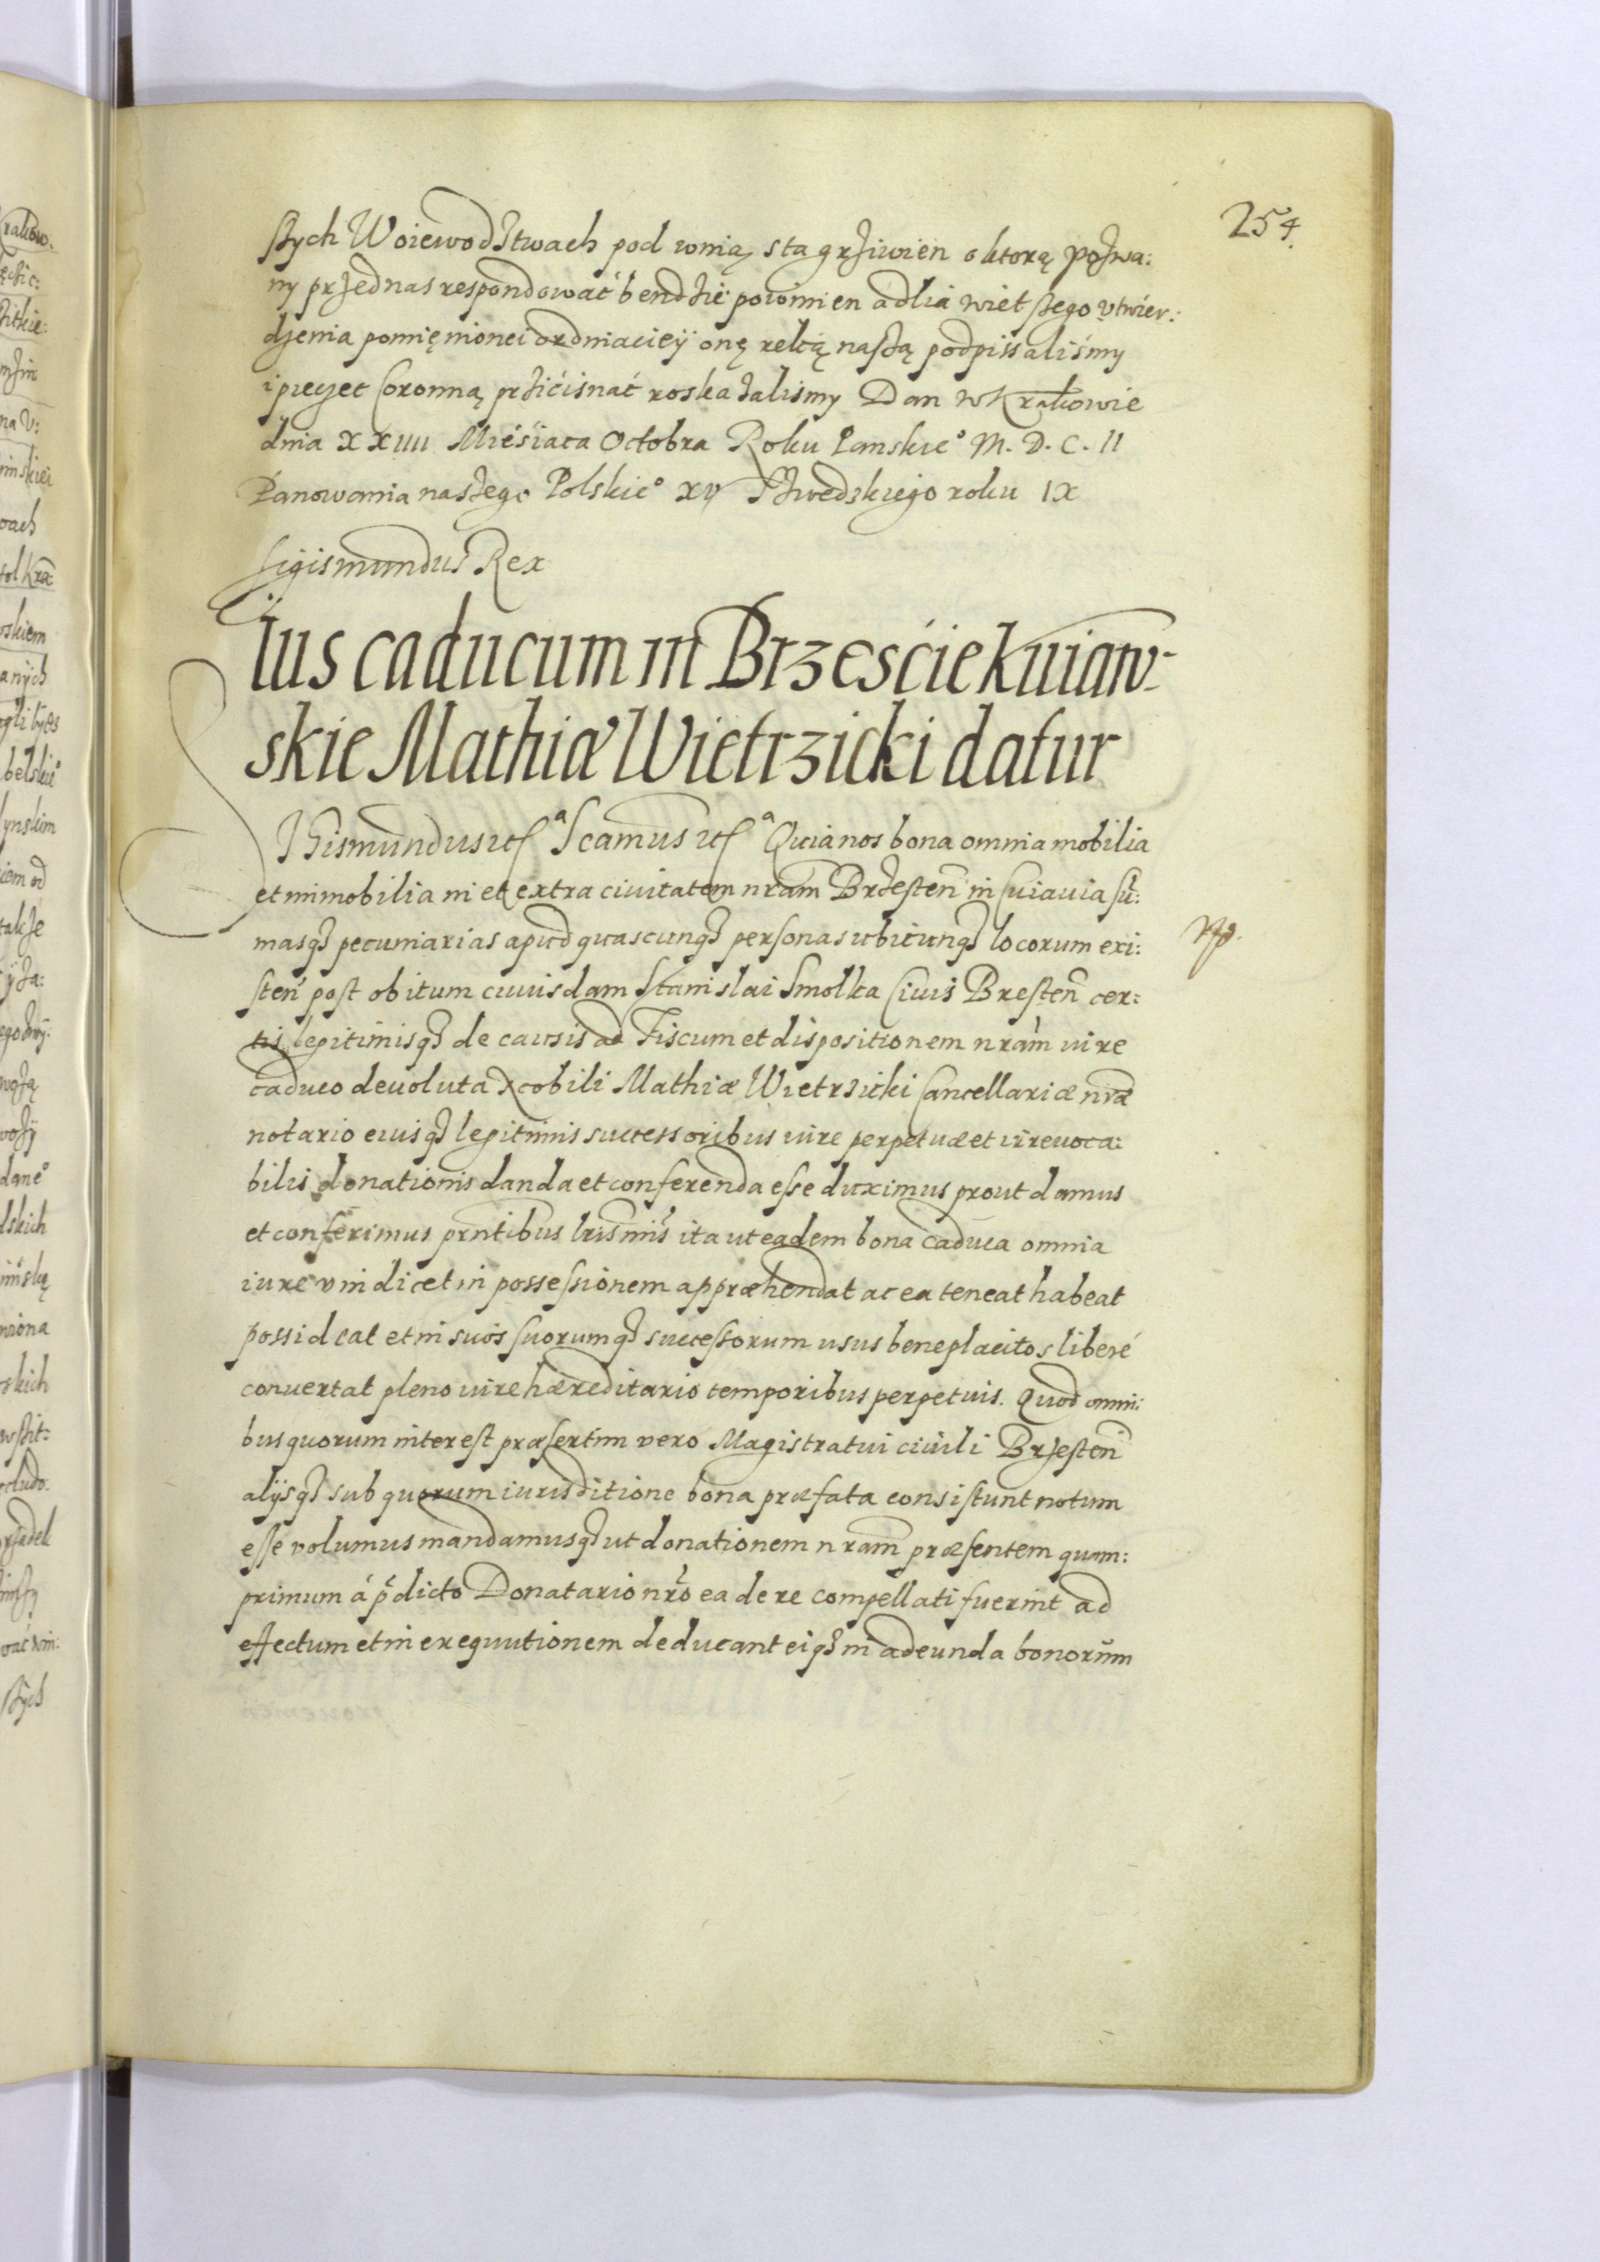 254.
ſzych Woiewodztwach pod winią sta grziwien o ktorą pozwa:
ny przed nas respondować bendzie powinien a dlia wietſzego utwier:
dzenia pomięnionei ordinaciey onę ręką naſzą podpissaliśmy
i pieczęc Coronną przicisnać roskazalismy Dan w Krakowie
dnia XXIIII Miesiaca Octobra Roku Panskie° M. D. C. II
Panowania naszego Polskie° XV Szwedzkiego roku IX
Sigismundus Rex
Ius caducum in Brzeście Kuiaw-
skie Mathiæ Wietrzicki datur
Sigismundus etc̃ a Scamus etc̃ a Quia nos bona omnia mobilia
et immobilia in et extra civitatem nram Brzesteñ in Cuiavia sũ:
masq̃ pecuniarias apud quascunq̃ personas ubicunq̃ locorum exi:
steñ post obitum cuiusdam Stanislai Smolka Civis Bresteñ cer:
tis legitimisq̃ de causis ad Fiscum et dispositionem nram iure
caduco devoluta Nobili Mathiæ Wietrzicki Cancellariæ nræ
notario eiusq̃ legitimis successoribus iure perpetuæ et irrevoca:
bilis donationis danda et conferenda esse duximus prout damus
et conferimus prntibus lris nris ita ut eadem bona caduca omnia
iure vindicet in possessionem appræhendat ac ea teneat habeat
possideat et in suos suorumq̃ successorum usus beneplacitos liberé
convertat pleno iure hæreditario temporibus perpetuis. Quod omni:
bus quorum interest præsertim vero Magistratui civili Brzesteñ
alijsq̃ sub quorum iurisditione bona præfata consistunt notum
esse volumus mandamusq̃ ut donationem nram præsentem quam:
primum á p̃dicto Donatario nrõ ea de re compellati fuerint ad
effectum et in exequutionem deducant eiq̃ in adeunda bonorũm